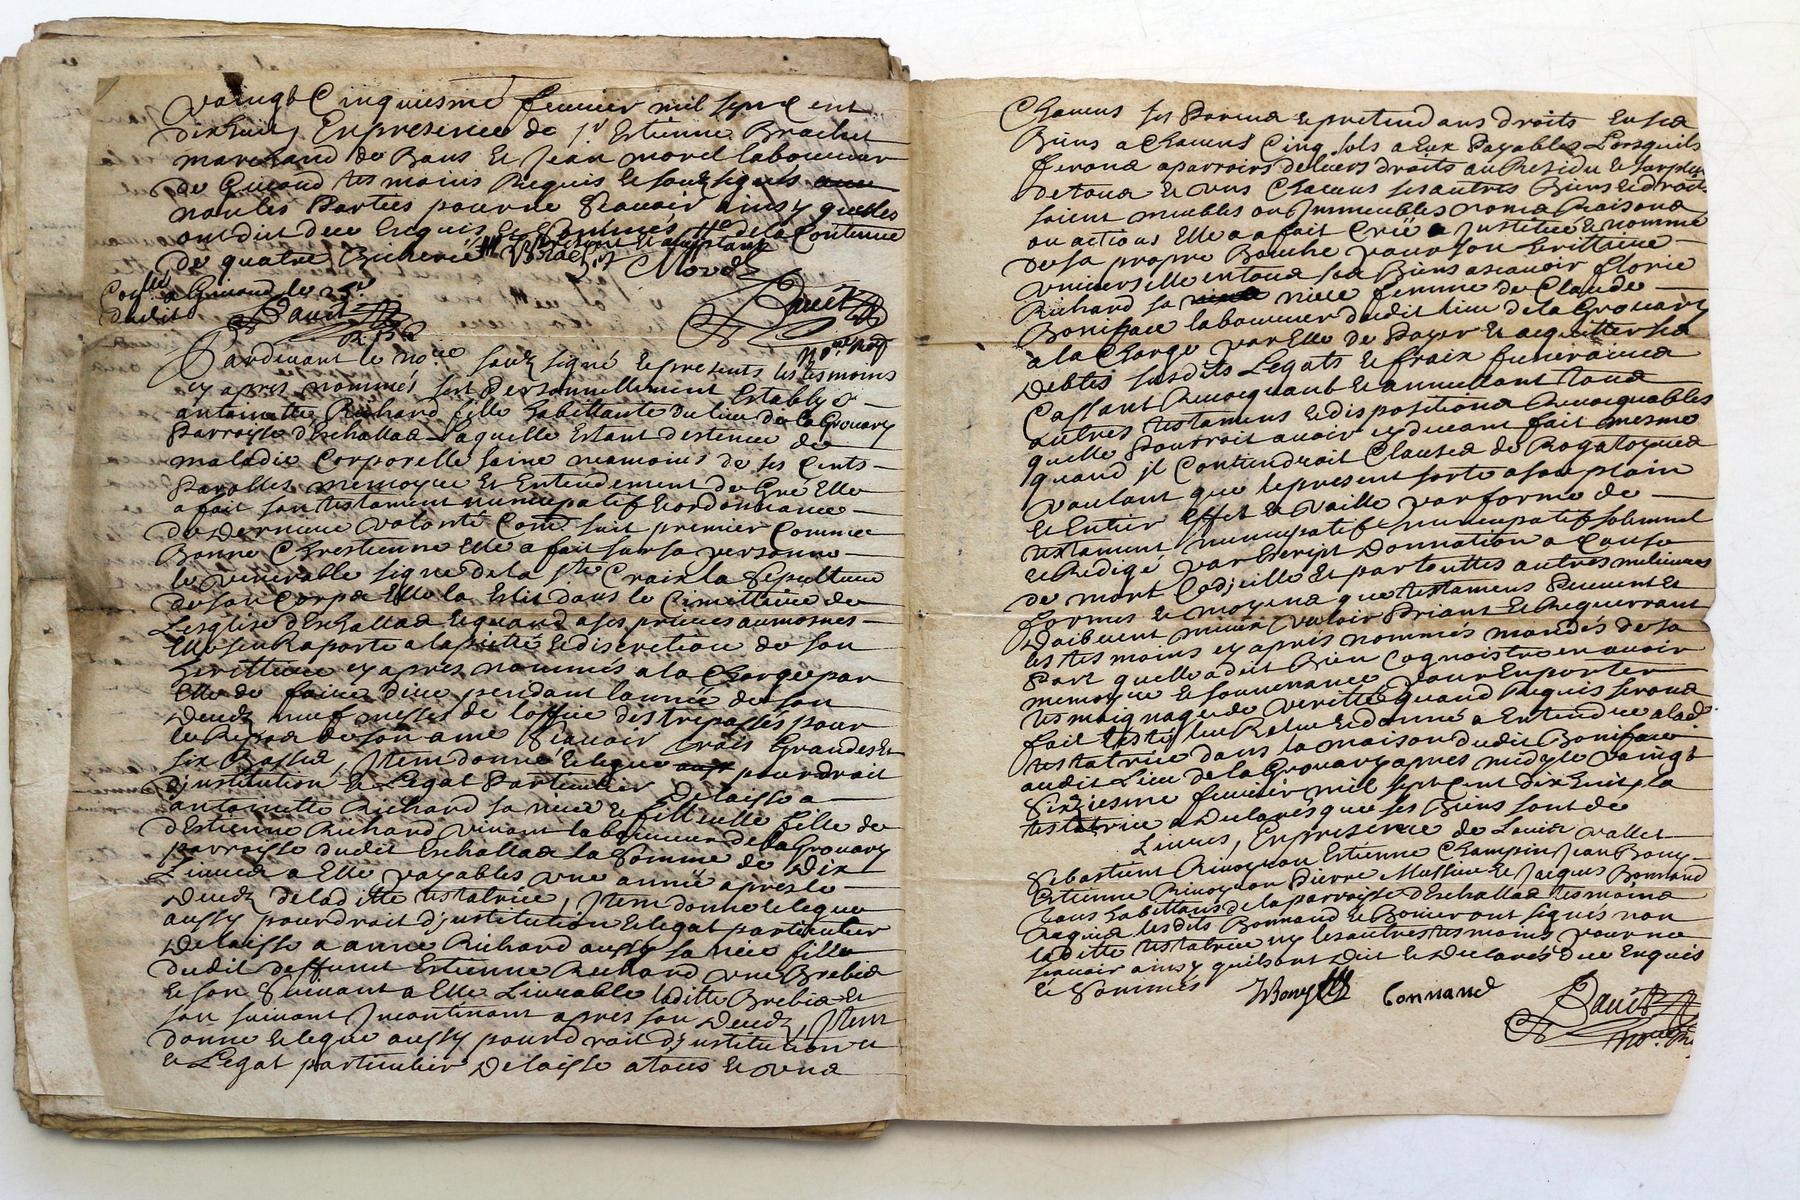 vaingt Cinquiesme feuvrier mil sept Cent
dixhuit, En presence de sr Estienne Brachet
marchand de Bans et Jean morel laboureur
de Givord tesmoins Requis le soubsignés
non les Parties pour ne Scavoir ainsy quelles
ont dit deue Enquis et Sommés de la Contenue
de quatre Bicheriee
Morel
a Givord le
dudit Dauit
Dauit
Pardevant le no.re soubz signé et presents les tesmoins
cy apres nommés fut Personnellement Establye
antoinette Richard fille habittante du lieu de la Grouary
Parroisse d'Eschallas laquelle Estant destenue de
maladie Corporelle saine neamoins de ses Cents
Parolles memoyre et Entendement de Gré Elle
a fait son testament nuncupatif et ordonnance
de derniere volonté Com.e suit premier Comme
Bonne Chrestienne Elle a fait sur sa personne
le venerable signe de la ste Croix la Sepulture
de son Corps Elle la Eslit dans le Cimettiere de
L'esglise d'Eschallas Et quand a ses prieres aumosnes
Elle s'en Raporte a la pieté et discretion de son
herittiere cy apres nommés a la Charge par
Elle de faire dire pendant l'année de son
deuedz neuf messes de l'office des trepassés pour
le Repos de son ame Scavoir trois Grandes Et
six Basses, Item donne et legue pour droit
d'institution et Legat Particulier Delaisse a
antoinette Richard sa niece et fillieulle fille de
d'Estienne Richard vivant laboureur de la Grouary
parroisse dudit Eschallas la Somme de Dix
Livres a Elle payables une année apres le
deuedz de laditte testatrice, Item donne et legue
aussy pour droit d'institution et legat particulier
Delaisse a anne Richard aussy sa niece fille
dudit deffunt Estienne Richard une Brebis
et son Suivant a Elle Livrable laditte Brebis et
son suivant Incontinant apres son deuedz, Item
donne et legue aussy pour droit d'institution
et Legat particulier Delaisse a tous et uns
Chacuns ses Parens et pretendans droits En ses
Biens a Chacuns Cinq sols a Eux Payables Lorsquils
feront apparroir de leurs droits au Residu et surplus
de tous et uns Chacuns ses autres Biens et droits
soient meubles ou Immeubles noms Raisons
ou actions Elle a a fait Créé Institué et nommé
de sa propre Bouche pour son herittiere
universelle en tous ses Biens ascavoir florie
Richard sa niece femme de Claude
Boniface laboureur dudit lieu de la Grouary
a la Charge par Elle de Payer et acquitter ses
debtes susdits Legats et fraix funeraires
Cassant Revocquant et annullant tous
autres testamens et dispositions Revocquables
quelle Pourroit avoir cy devant fait mesme
quand il Contiendroit Clauses de Rogatoyres
Voulant que le present sorte a son plain
et Entier Effet et Vaille par forme de
testament nuncupatif, nuncupatif solemnel
et Redigé par Escript Donnation a Cause
de mort Codicille et par touttes autres meilieures
formes et moyens que testamens Peuvent et
Doibvent mieux valoir Priant et Requerrant
les tesmoins cy apres nommés mandés de sa
Part quelle a dit Bien Cognoistre en avoir
memoyre et souvenance pour En porter
tesmoignage de verité quand Requis seront
fait testé leu Releu et donné a Entendre a lad.
testatrice dans la maison dudit Boniface
audit Lieu de la Grouary apres midy le vaingt
Sixiesme feuvrier mil sept Cent dix huit, la
testatrice a Declarés que ses Biens sont de
Livres, En presence de Louis vallet
Sebastien Rivoyron Estienne Champin Jean Bony
Estienne Rivoyron Pierre Mussieu et Jacques Bonnand
tous habittans de la parroisse d'Eschallas tesmoins
Requis lesdits Bonnand et Bony ont signés non
laditte testatrice ny les autres tesmoins pour ne
scavoir ainsy quils ont Dit et Declarés deue Enquis
et Sommés
JBony Bonnand
Dauit